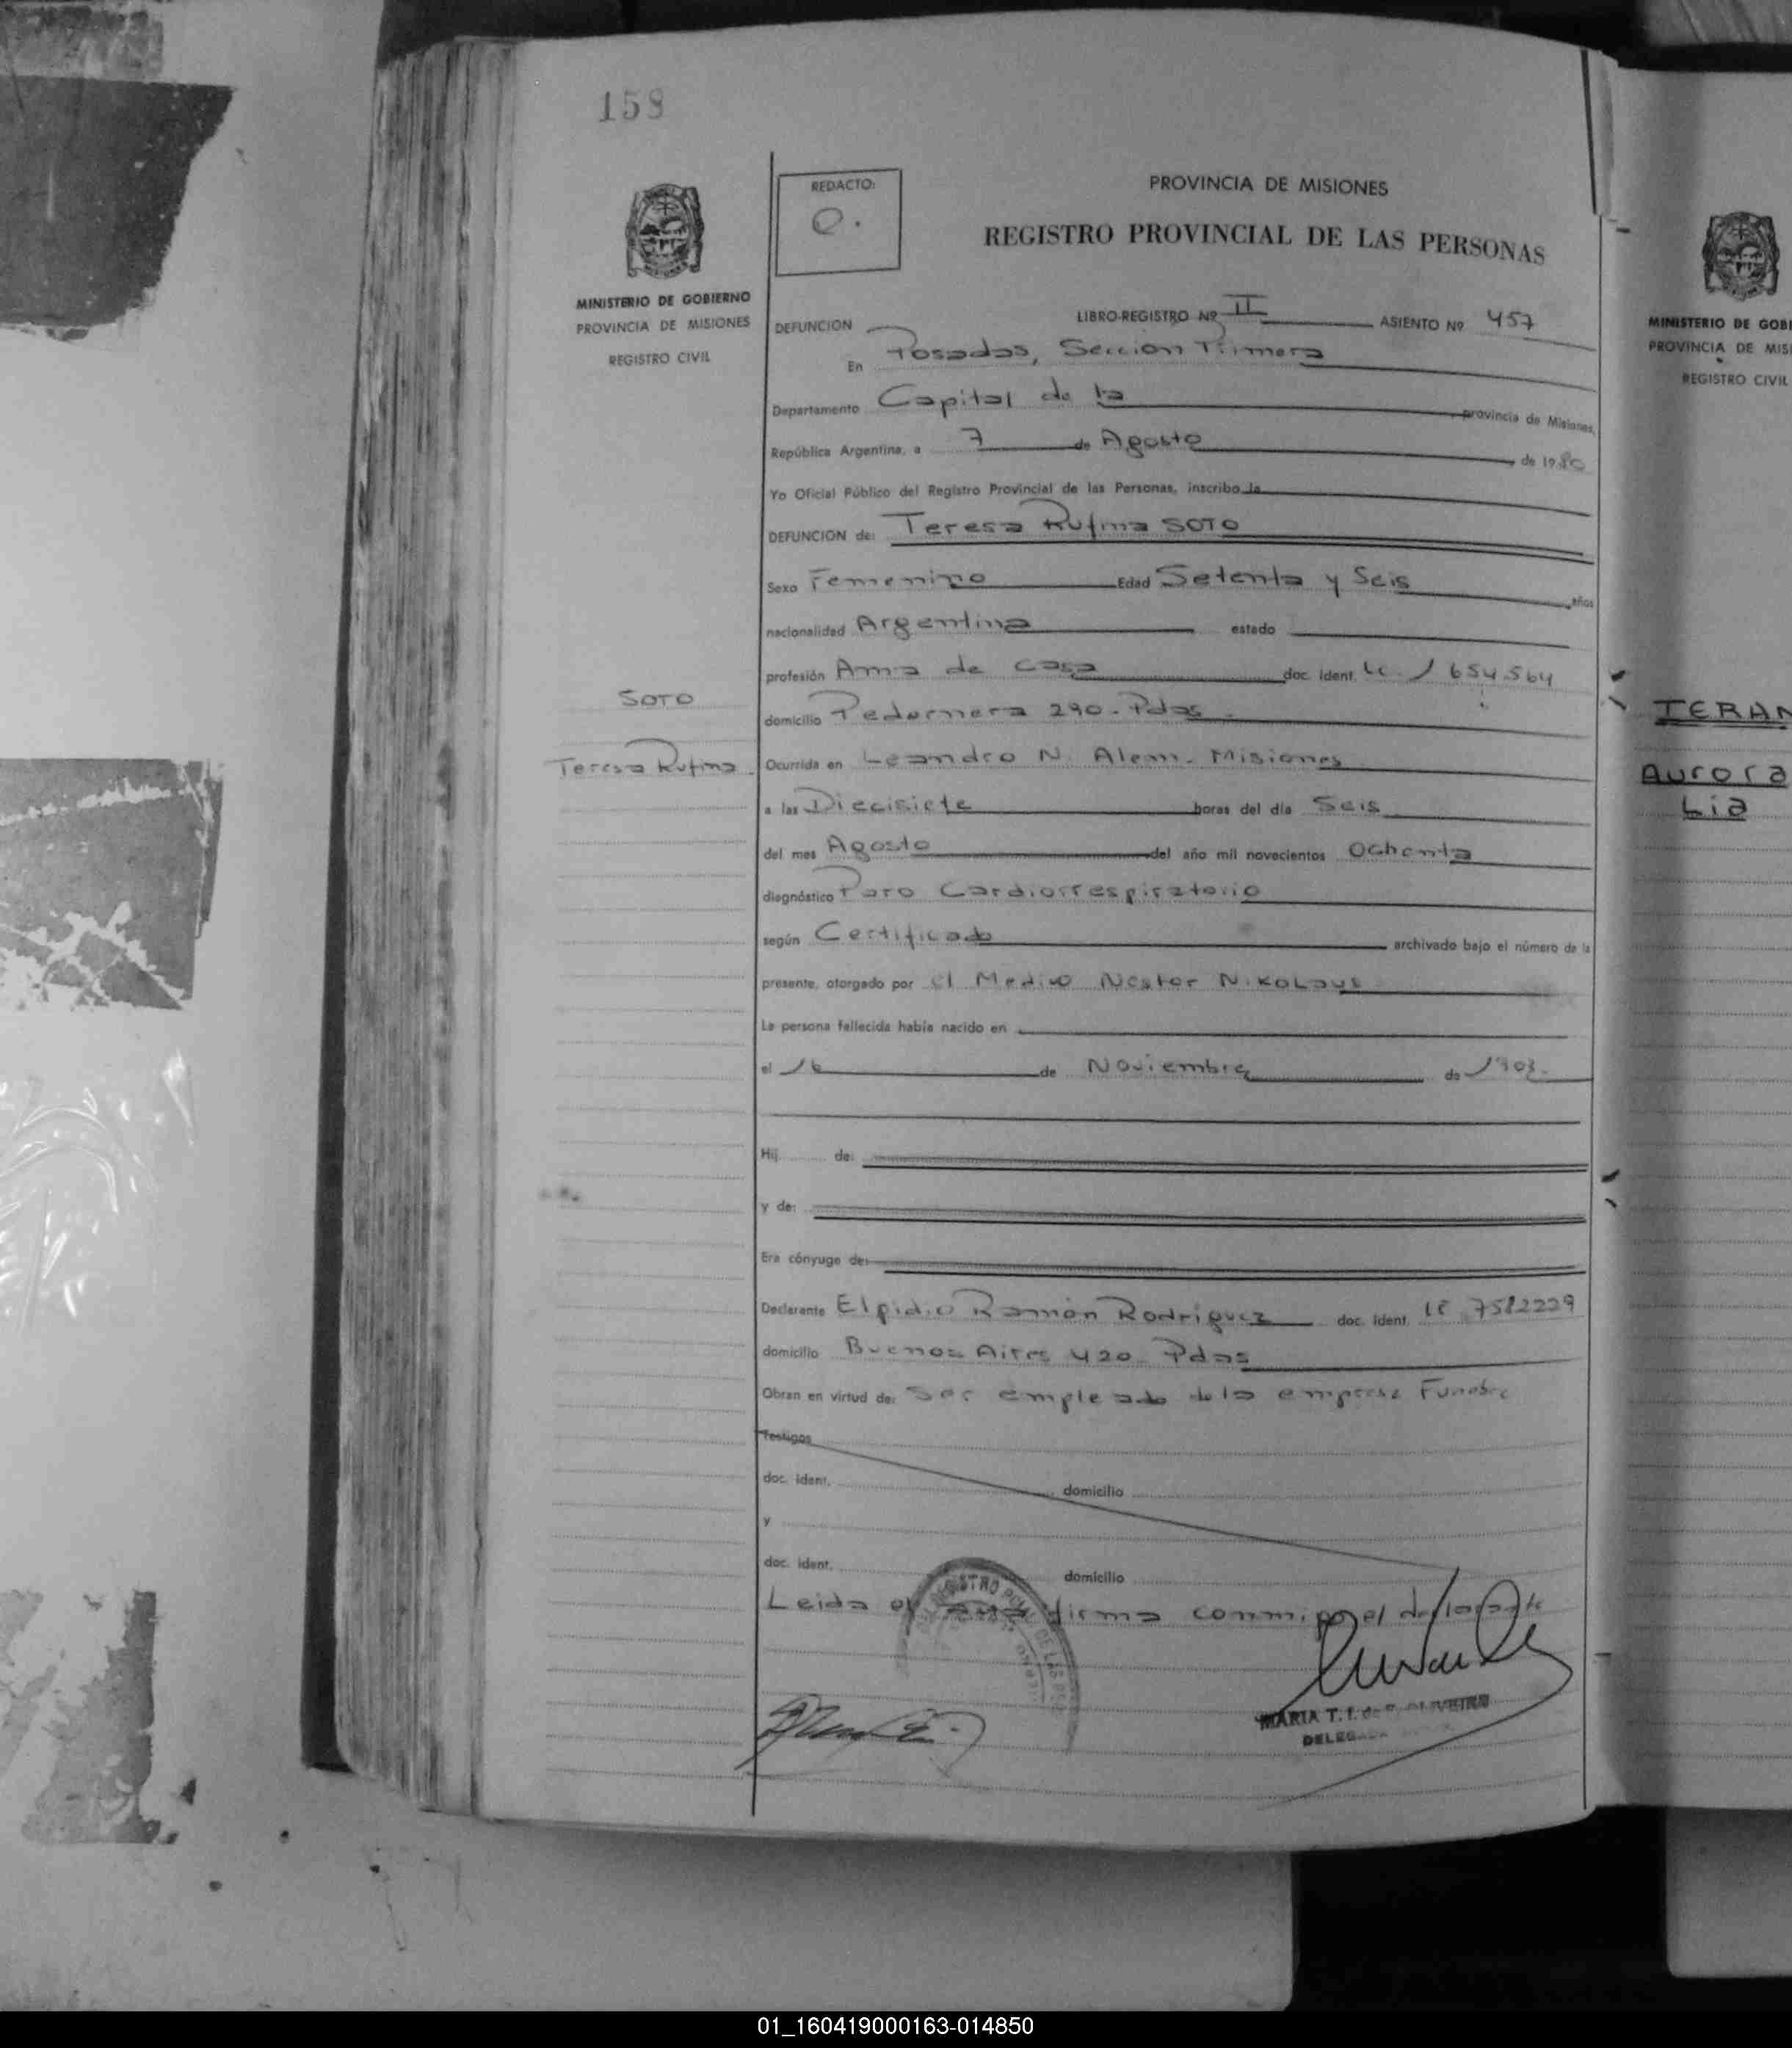 158
REDACTO:
PROVINCIA DE MISIONES
REGISTRO PROVINCIAL DE LAS PERSONAS
MINISTERIO DE GOBIERNO
PROVINCIA DE MISIONES
REGISTRO CIVIL
LIBRO-REGISTRO Nº II ASIENTO Nº 457
DEFUNCION
En Posadas, Sección Primera
Departamento Capital de la provincia de Misiones,
República Argentina, a 7 de Agosto de 1980
Yo Oficial Público del Registro Provincial de las Personas, inscribo la
DEFUNCION de: Teresa Rufina SOTO
Sexo Femenino Edad Setenta y Seis años
nacionalidad Argentina estado
profesión Ama de Casa doc. ident. LC. 1654.564
SOTO
Teresa Rufina
domicilio Pedernera 290. Pdas
Ocurrida en Leandro N. Alem. Misiones
a las Diecisiete horas del día Seis
del mes Agosto del año mil novecientos Ochenta
diagnóstico Paro Cardiorrespiratorio
según Certificado archivado bajo el número de la
presente, otorgado por el Medico Nestor Nikolaus
La persona fallecida había nacido en
el 16 de Noviembre de 1903.
Hij de:
y de:
Era cónyuge de:
Declarante Elpidio Ramón Rodriguez doc. ident. LE 7582229
domicilio Buenos Aires 420 Pdas
Obran en virtud de: Ser empleado de la empresa Funebre
Testigos
doc. ident. domicilio
y
doc. ident. domicilio
Leida el Acta firma conmigo el declarante
MARIA T. I. de
MINISTERIO DE GOBI
PROVINCIA DE MIS
REGISTRO CIVIL
TERAN
Aurora
Lia
01_160419000163-014850